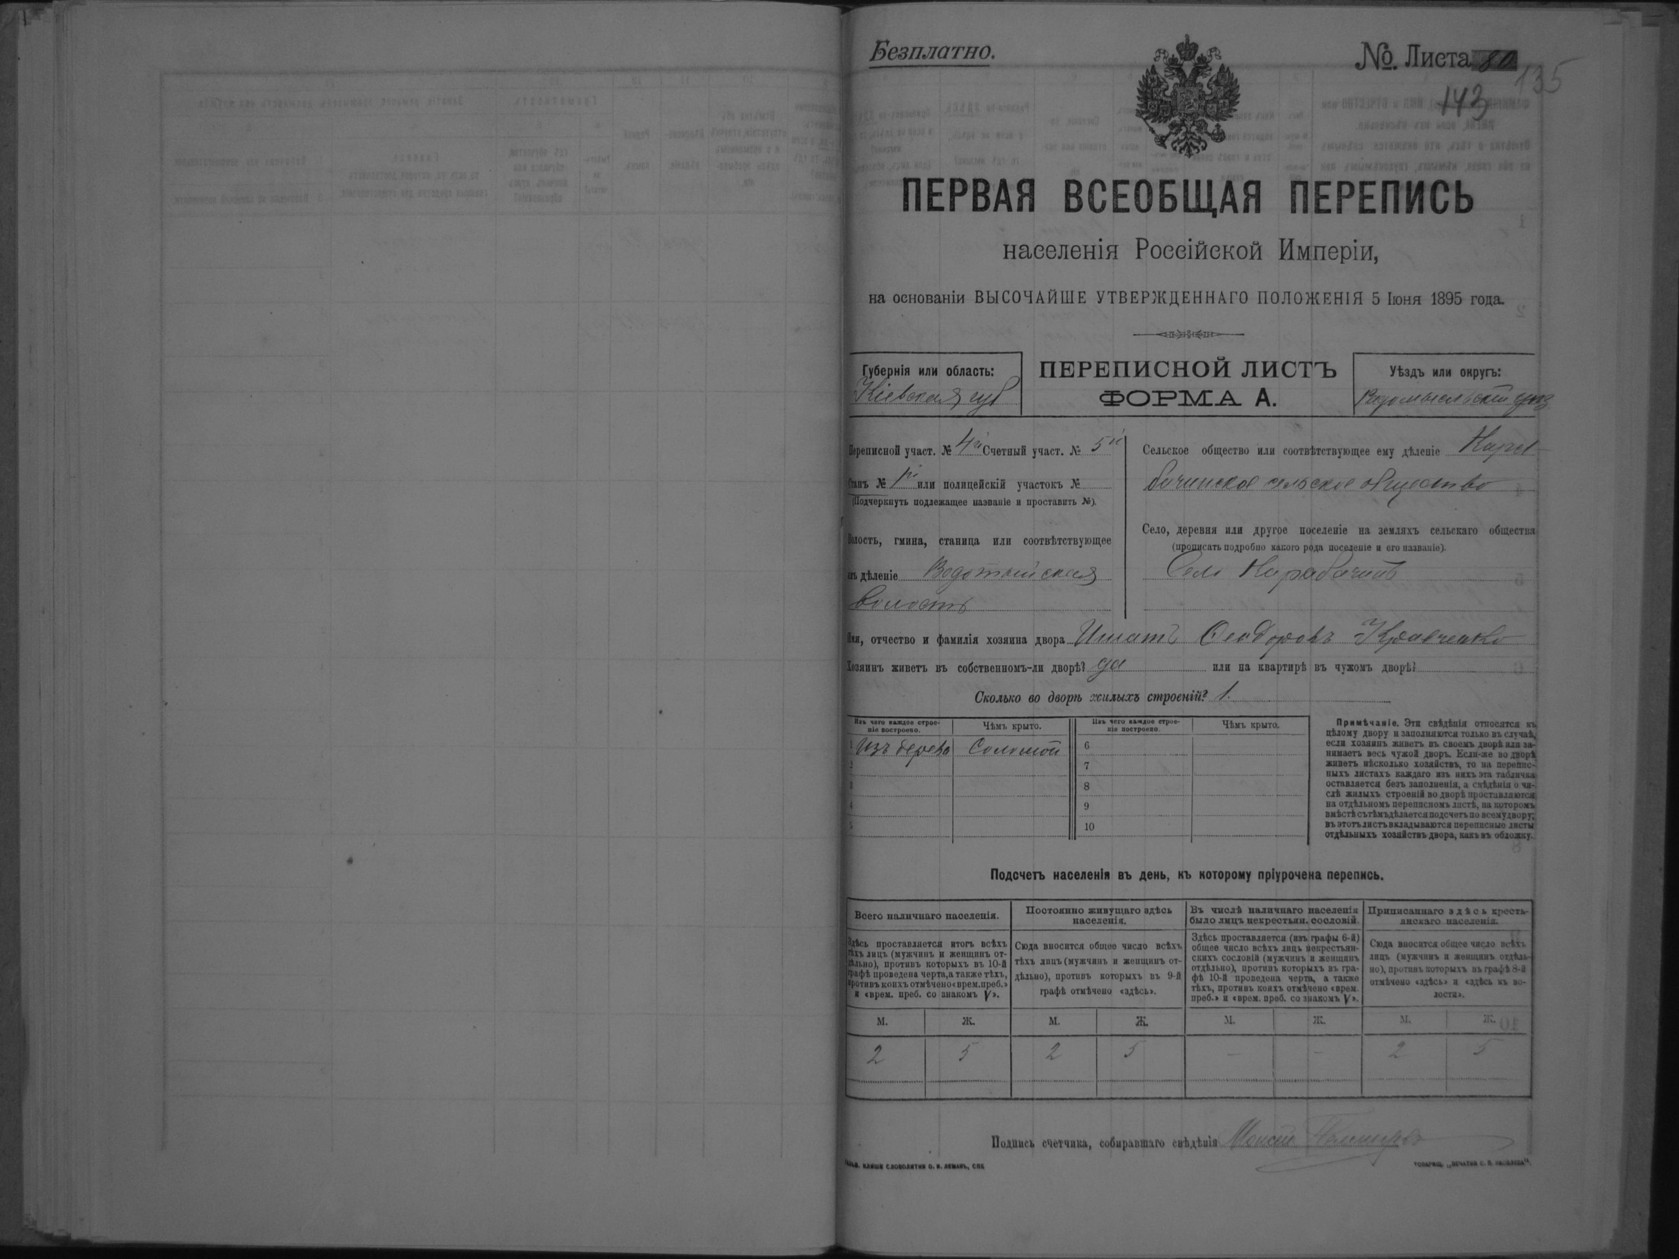 Безплатно.
№ Листа 80
135
143
ПЕРВАЯ ВСЕОБЩАЯ ПЕРЕПИСЬ
населенія Россійской Имперіи,
на основаніи ВЫСОЧАЙШЕ УТВЕРЖДЕННАГО ПОЛОЖЕНІЯ 5 Іюня 1895 года.
Губернія или область:
Кіевская губ
ПЕРЕПИСНОЙ ЛИСТЪ
ФОРМА А.
Уѣздъ или округъ:
Радомысльскій уѣзд
Переписной участ. № 4й Счетный участ. № 5й
Станъ № 1й или полицейскій участокъ №
(Подчеркнуть подлежащее названіе и проставить №).
Волость, гмина, станица или соотвѣтствующее
имъ дѣленіе Водотыйская
волость
Сельское общество или соотвѣтствующее ему дѣленіе Кара-
бачинское сельское общество
Село, деревня или другое поселеніе на земляхъ сельскаго общества
(прописать подробно какого рода поселеніе и его названіе).
Село Карабачинъ
Имя, отчество и фамилія хозяина двора Игнатъ Феодоровъ Кравченко
Хозяинъ живетъ въ собственномъ-ли дворѣ? да или на квартирѣ въ чужомъ дворѣ?
Сколько во дворѣ жилыхъ строеній? 1.
Изъ чего каждое строе-
ніе построено.
Чѣмъ крыто.
Изъ чего каждое строе-
ніе построено.
Чѣмъ крыто.
1 Изъ дерева Соломой 6
2 7
3 8
4 9
5 10
Примѣчаніе. Эти свѣдѣнія относятся къ
цѣлому двору и заполняются только въ случаѣ,
если хозяинъ живетъ въ своемъ дворѣ или за-
нимаетъ весь чужой дворъ. Если-же во дворѣ
живетъ нѣсколько хозяйствъ, то на перепис-
ныхъ листахъ каждаго изъ нихъ эта табличка
оставляется безъ заполненія, а свѣдѣнія о чи-
слѣ жилыхъ строеній во дворѣ проставляются
на отдѣльномъ переписномъ листѣ, на которомъ
вмѣстѣ съ тѣмъ дѣлается подсчетъ по всему двору;
въ этотъ листъ вкладываются переписные листы
отдѣльныхъ хозяйствъ двора, какъ въ обложку.
Подсчетъ населенія въ день, къ которому пріурочена перепись.
Всего наличнаго населенія.
Постоянно живущаго здѣсь
населенія.
Въ числѣ наличнаго населенія
было лицъ некрестьян. сословій.
Приписаннаго здѣсь кресть-
янскаго населенія.
Здѣсь проставляется итогъ всѣхъ
тѣхъ лицъ (мужчинъ и женщинъ от-
дѣльно), противъ которыхъ въ 10-й
графѣ проведена черта, а также тѣхъ,
противъ коихъ отмѣчено «врем. преб.»
и «врем. преб. со знакомъ V».
Сюда вносится общее число всѣхъ
тѣхъ лицъ (мужчинъ и женщинъ от-
дѣльно), противъ которыхъ въ 9-й
графѣ отмѣчено «здѣсь».
Здѣсь проставляется (изъ графы 6-й)
общее число всѣхъ лицъ некрестьян-
скихъ сословій (мужчинъ и женщинъ
отдѣльно), противъ которыхъ въ гра-
фѣ 10-й проведена черта, а также
тѣхъ, противъ коихъ отмѣчено «врем.
преб.» и «врем. преб. со знакомъ V».
Сюда вносится общее число всѣхъ
лицъ (мужчинъ и женщинъ отдѣль-
но), противъ которыхъ въ графѣ 8-й
отмѣчено «здѣсь» и «здѣсь въ во-
лости».
М. Ж. М. Ж. М. Ж. М. Ж.
2 5 2 5 - - 2 5
Подпись счетчика, собиравшаго свѣдѣнія